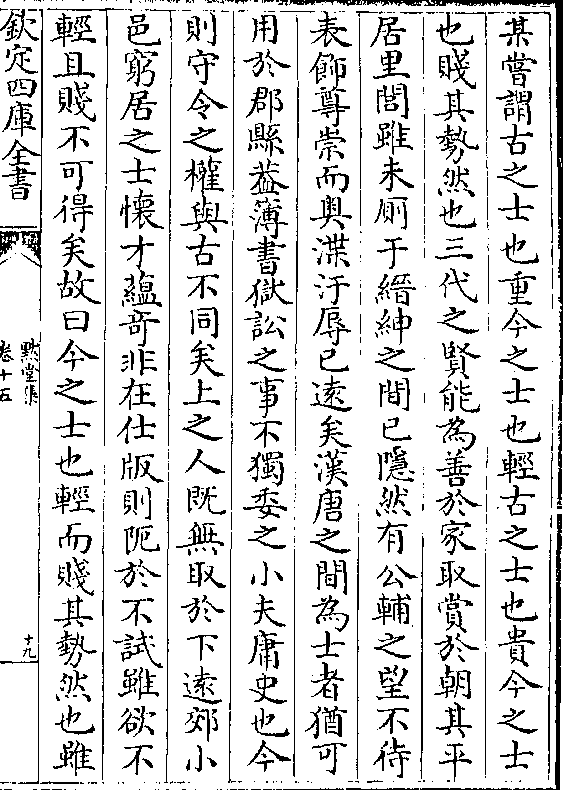 某嘗謂古之士也重今之士也輕古之士也貴今之士
也賤其勢然也三代之賢能為善於家取賞於朝其平
居里閭雖未厠于縉紳之間已隱然有公輔之望不待
表飾尊崇而與渫汙辱已遠矣漢唐之間為士者猶可
用於郡縣葢簿書獄訟之事不獨委之小夫庸史也今
則守令之權與古不同矣上之人既無取於下逺郊小
邑窮居之士懷才蘊奇非在仕版則阨於不試雖欲不
輕且賤不可得矣故曰今之士也輕而賤其勢然也雖
欽定四庫全書
默堂集
卷十五
十九